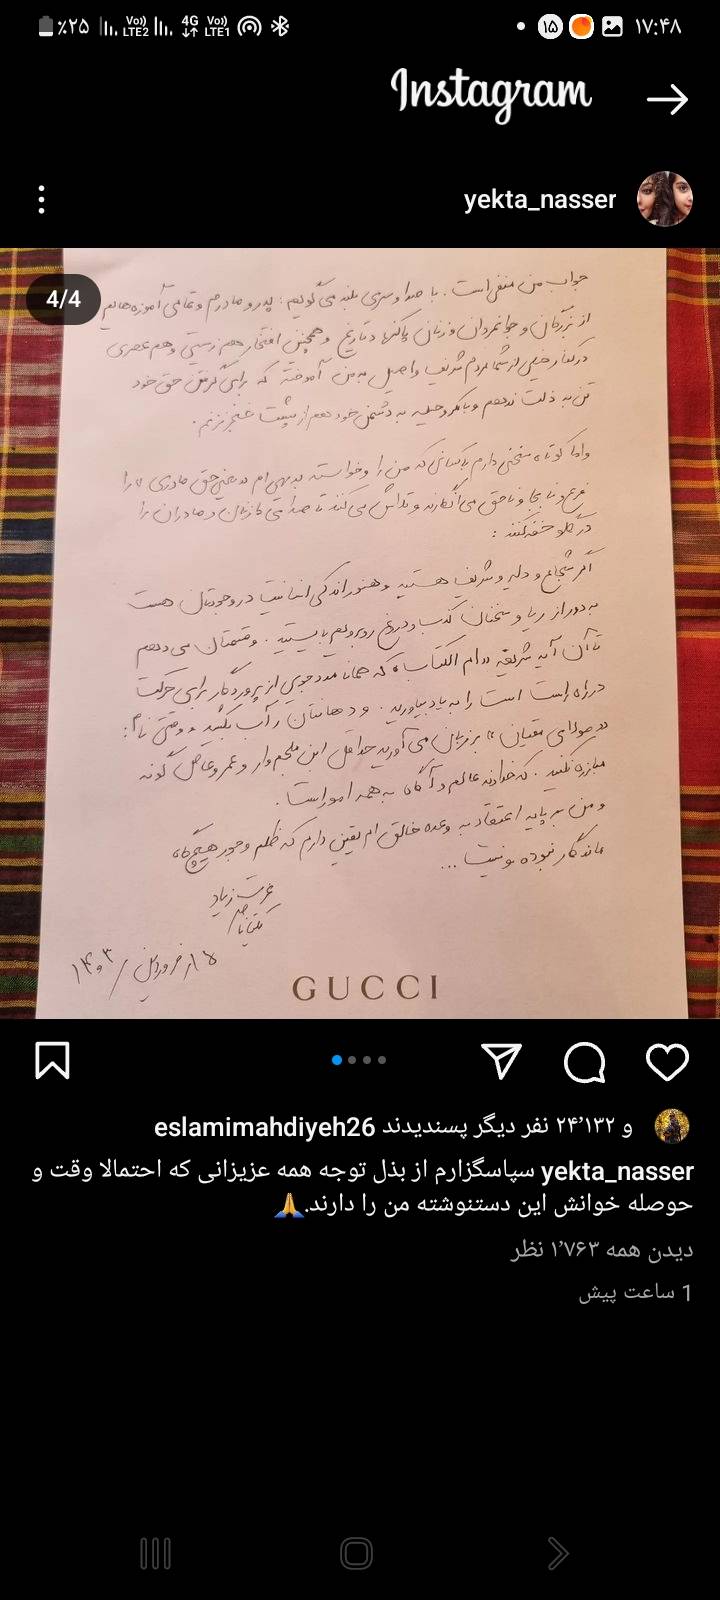 ٪۲۵ Vo)) LTE2 4G Vo)) LTE1 ۱۵ ۱۷:۴۸
Instagram
yekta_nasser
4/4
جواب من منفی است. با صدا و سری بلند می گویم: پدر و مادرم و تمامی آموزه هایم
از بزرگان و جوانمردان و زنان پاک نهاد تاریخ و همچنین افتخار هم زیستی و هم عصری
در کنار خیلی از شما مردم شریف و اصیل به من آموخته که برای گرفتن حق خود
تن به ذلت ندهم و با مکر و حیله به دشمن خود هم از پشت خنجر نزنم.
و اما کوتاه سخنی دارم با کسانی که من را و خواسته بدیهی ام یعنی حق مادری را
نابجا و ناحق می انگارند و تلاش می کنند تا صدای زنان و مادران را
در گلو خفه کنند:
اگر شجاع و دلیر و شریف هستید و هنوز اندکی انسانیت در وجودتان هست
به دور از ریا و سخنان کذب و دروغ رو برویم بایستید. و قسمتان می دهم
تا آن آیه شریفه ام الکتاب که همانا مدد جویی از پروردگار برای حرکت
در راه راست است را به یاد بیاورید. و دهانتان را آب بکشید وقتی نام:
مولای متقیان" بر زبان می آورید حداقل ابن ملجم وار و عمروعاص گونه
مبارزه نکنید. که خداوند عالم و آگاه به همه امور است.
و من بر پایه اعتقاد به وعده خالق ام یقین دارم که ظلم و جور هیچگاه
ماندگار نبوده و نیست ...
عزت زیاد
یکتا ناصر
۱۵ فروردین / ۱۴۰۳
GUCCI
eslamimahdiyeh26 و ۲۴٬۱۳۲ نفر دیگر پسندیدند
yekta_nasser سپاسگزارم از بذل توجه همه عزیزانی که احتمالا وقت و
حوصله خوانش این دستنوشته من را دارند.🙏
دیدن همه ۱٬۷۶۳ نظر
1 ساعت پیش